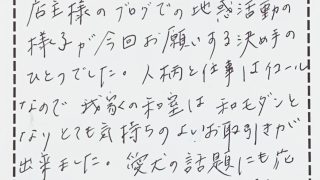 店主様のブログでの地域活動の
様子が今回お願いする決め手の
ひとつでした。人柄と仕事はイコール
なので我家の和室は和モダンと
なりとても気持ちのよいお取引きが
出来ました。愛犬の話題にも花